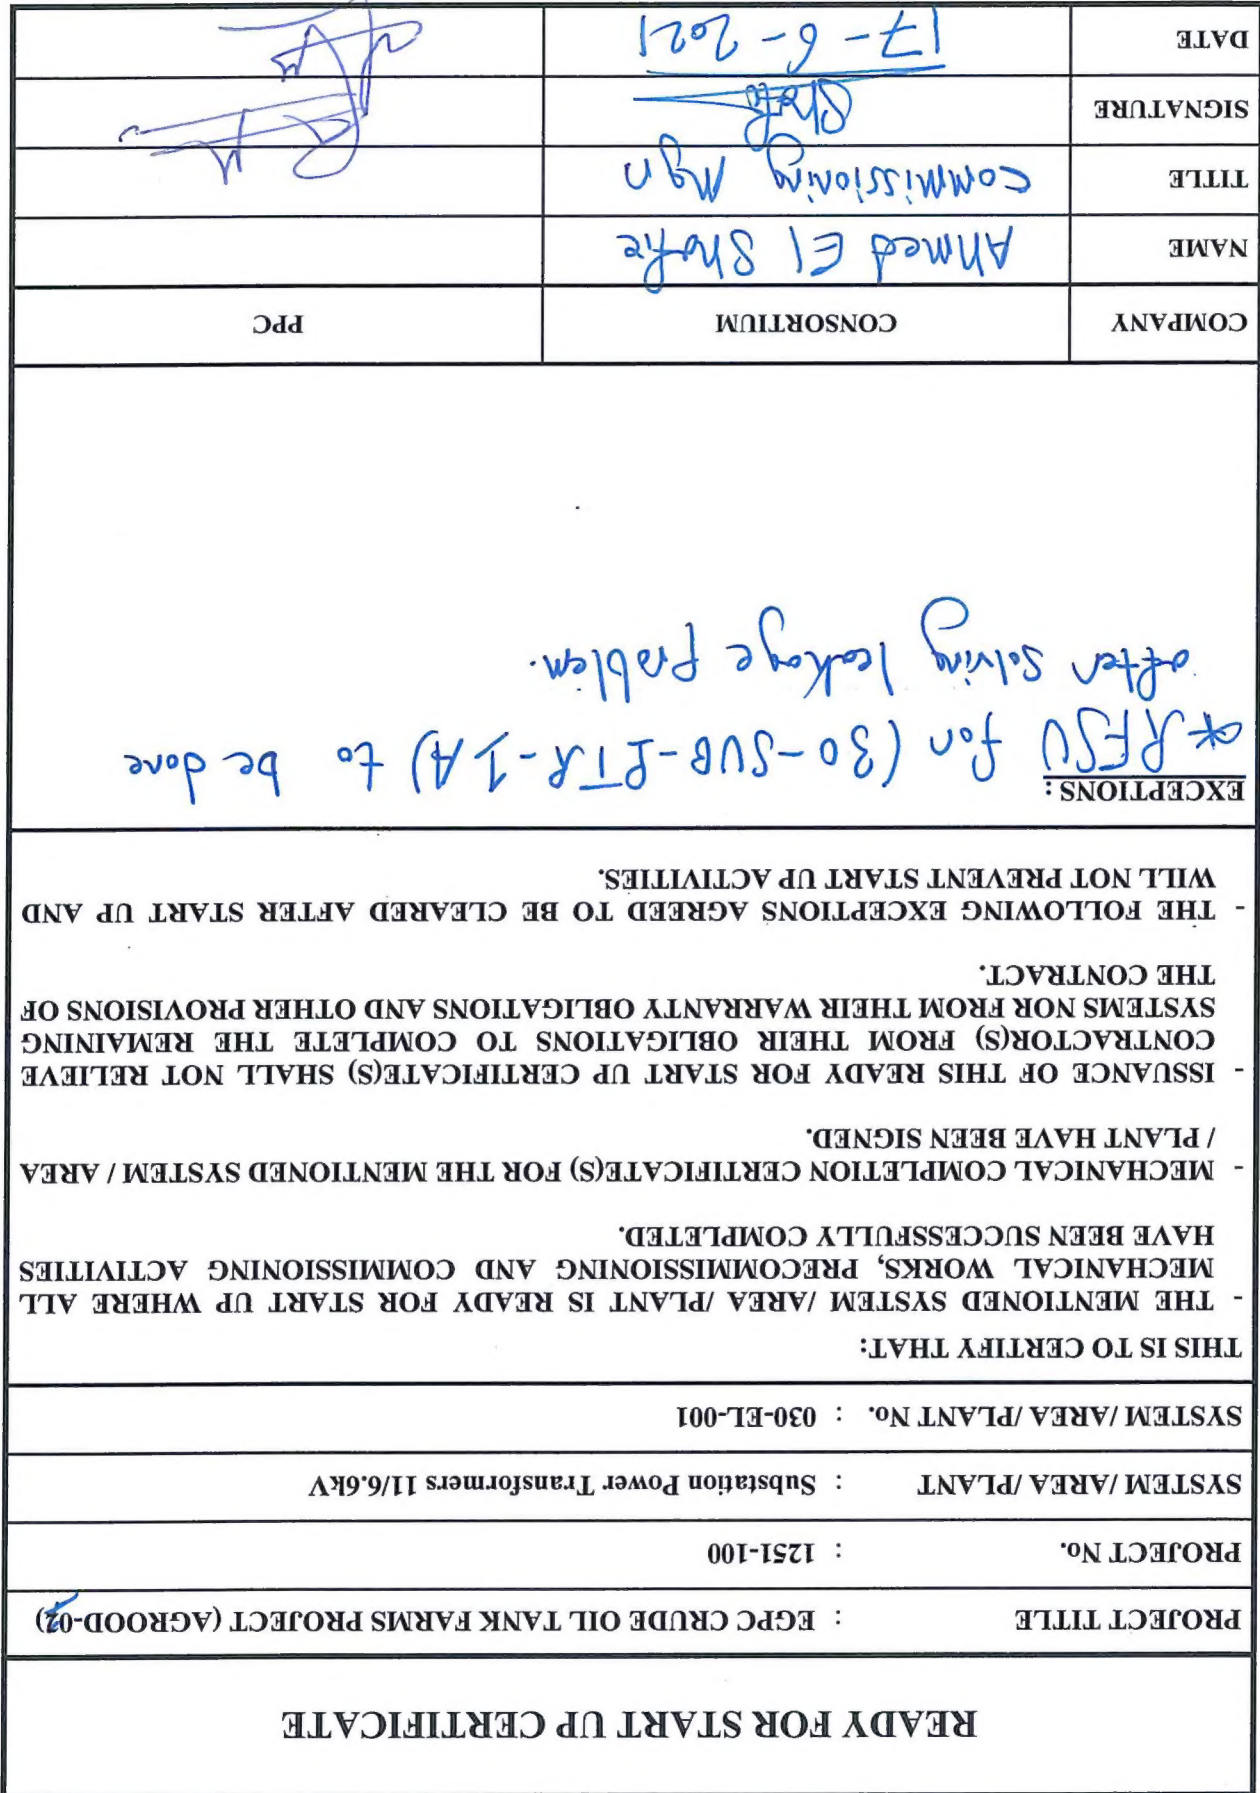 READY FOR START UP CERTIFICATE
PROJECT TITLE : EGPC CRUDE OIL TANK FARMS PROJECT (AGROOD-02)
PROJECT No. : 1251-100
SYSTEM /AREA /PLANT : Substation Power Transformers 11/6.6kV
SYSTEM /AREA /PLANT No. : 030-EL-001
THIS IS TO CERTIFY THAT:
- THE MENTIONED SYSTEM /AREA /PLANT IS READY FOR START UP WHERE ALL
MECHANICAL WORKS, PRECOMMISSIONING AND COMMISSIONING ACTIVITIES
HAVE BEEN SUCCESSFULLY COMPLETED.
- MECHANICAL COMPLETION CERTIFICATE(S) FOR THE MENTIONED SYSTEM / AREA
/ PLANT HAVE BEEN SIGNED.
- ISSUANCE OF THIS READY FOR START UP CERTIFICATE(S) SHALL NOT RELIEVE
CONTRACTOR(S) FROM THEIR OBLIGATIONS TO COMPLETE THE REMAINING
SYSTEMS NOR FROM THEIR WARRANTY OBLIGATIONS AND OTHER PROVISIONS OF
THE CONTRACT.
- THE FOLLOWING EXCEPTIONS AGREED TO BE CLEARED AFTER START UP AND
WILL NOT PREVENT START UP ACTIVITIES.
EXCEPTIONS:
* RFSU for (30-SUB-PTR-1A) to be done
after solving leakage problem.
COMPANY CONSORTIUM PPC
NAME Ahmed El Shafie
TITLE Commissioning Mgr
SIGNATURE
DATE 17-6-2021